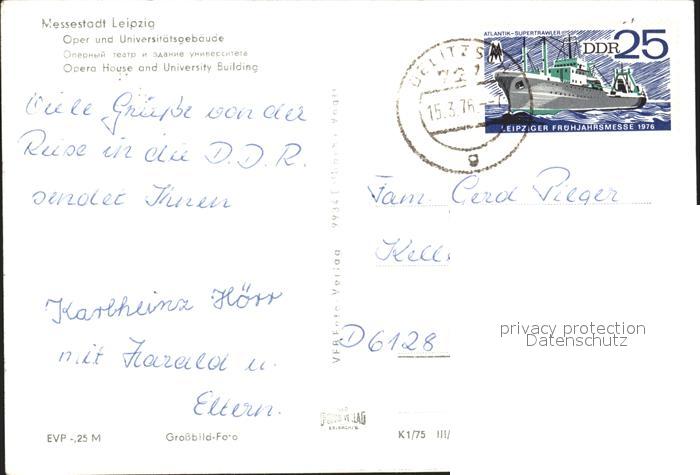 Messestadt Leipzig
Oper und Universitätsgebäude
Оперный театр и здание университета
Opera House and University Building
ATLANTIK-SUPERTRAWLER
DDR 25
LEIPZIGER FRÜHJAHRSMESSE 1976
15.3.76
g
Viele Grüße von der
Reise in die D.D.R.
sendet Ihnen
Karlheinz Hörr
mit Harald u.
Eltern.
Fam. Gerd Pieger
D6128
privacy protection
Datenschutz
VEB Foto-Verlag
EVP -,25 M
Großbild-Foto
K1/75 III/